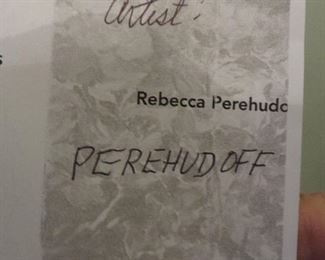 Artist:
s
Rebecca Perehudo
PEREHUDOFF